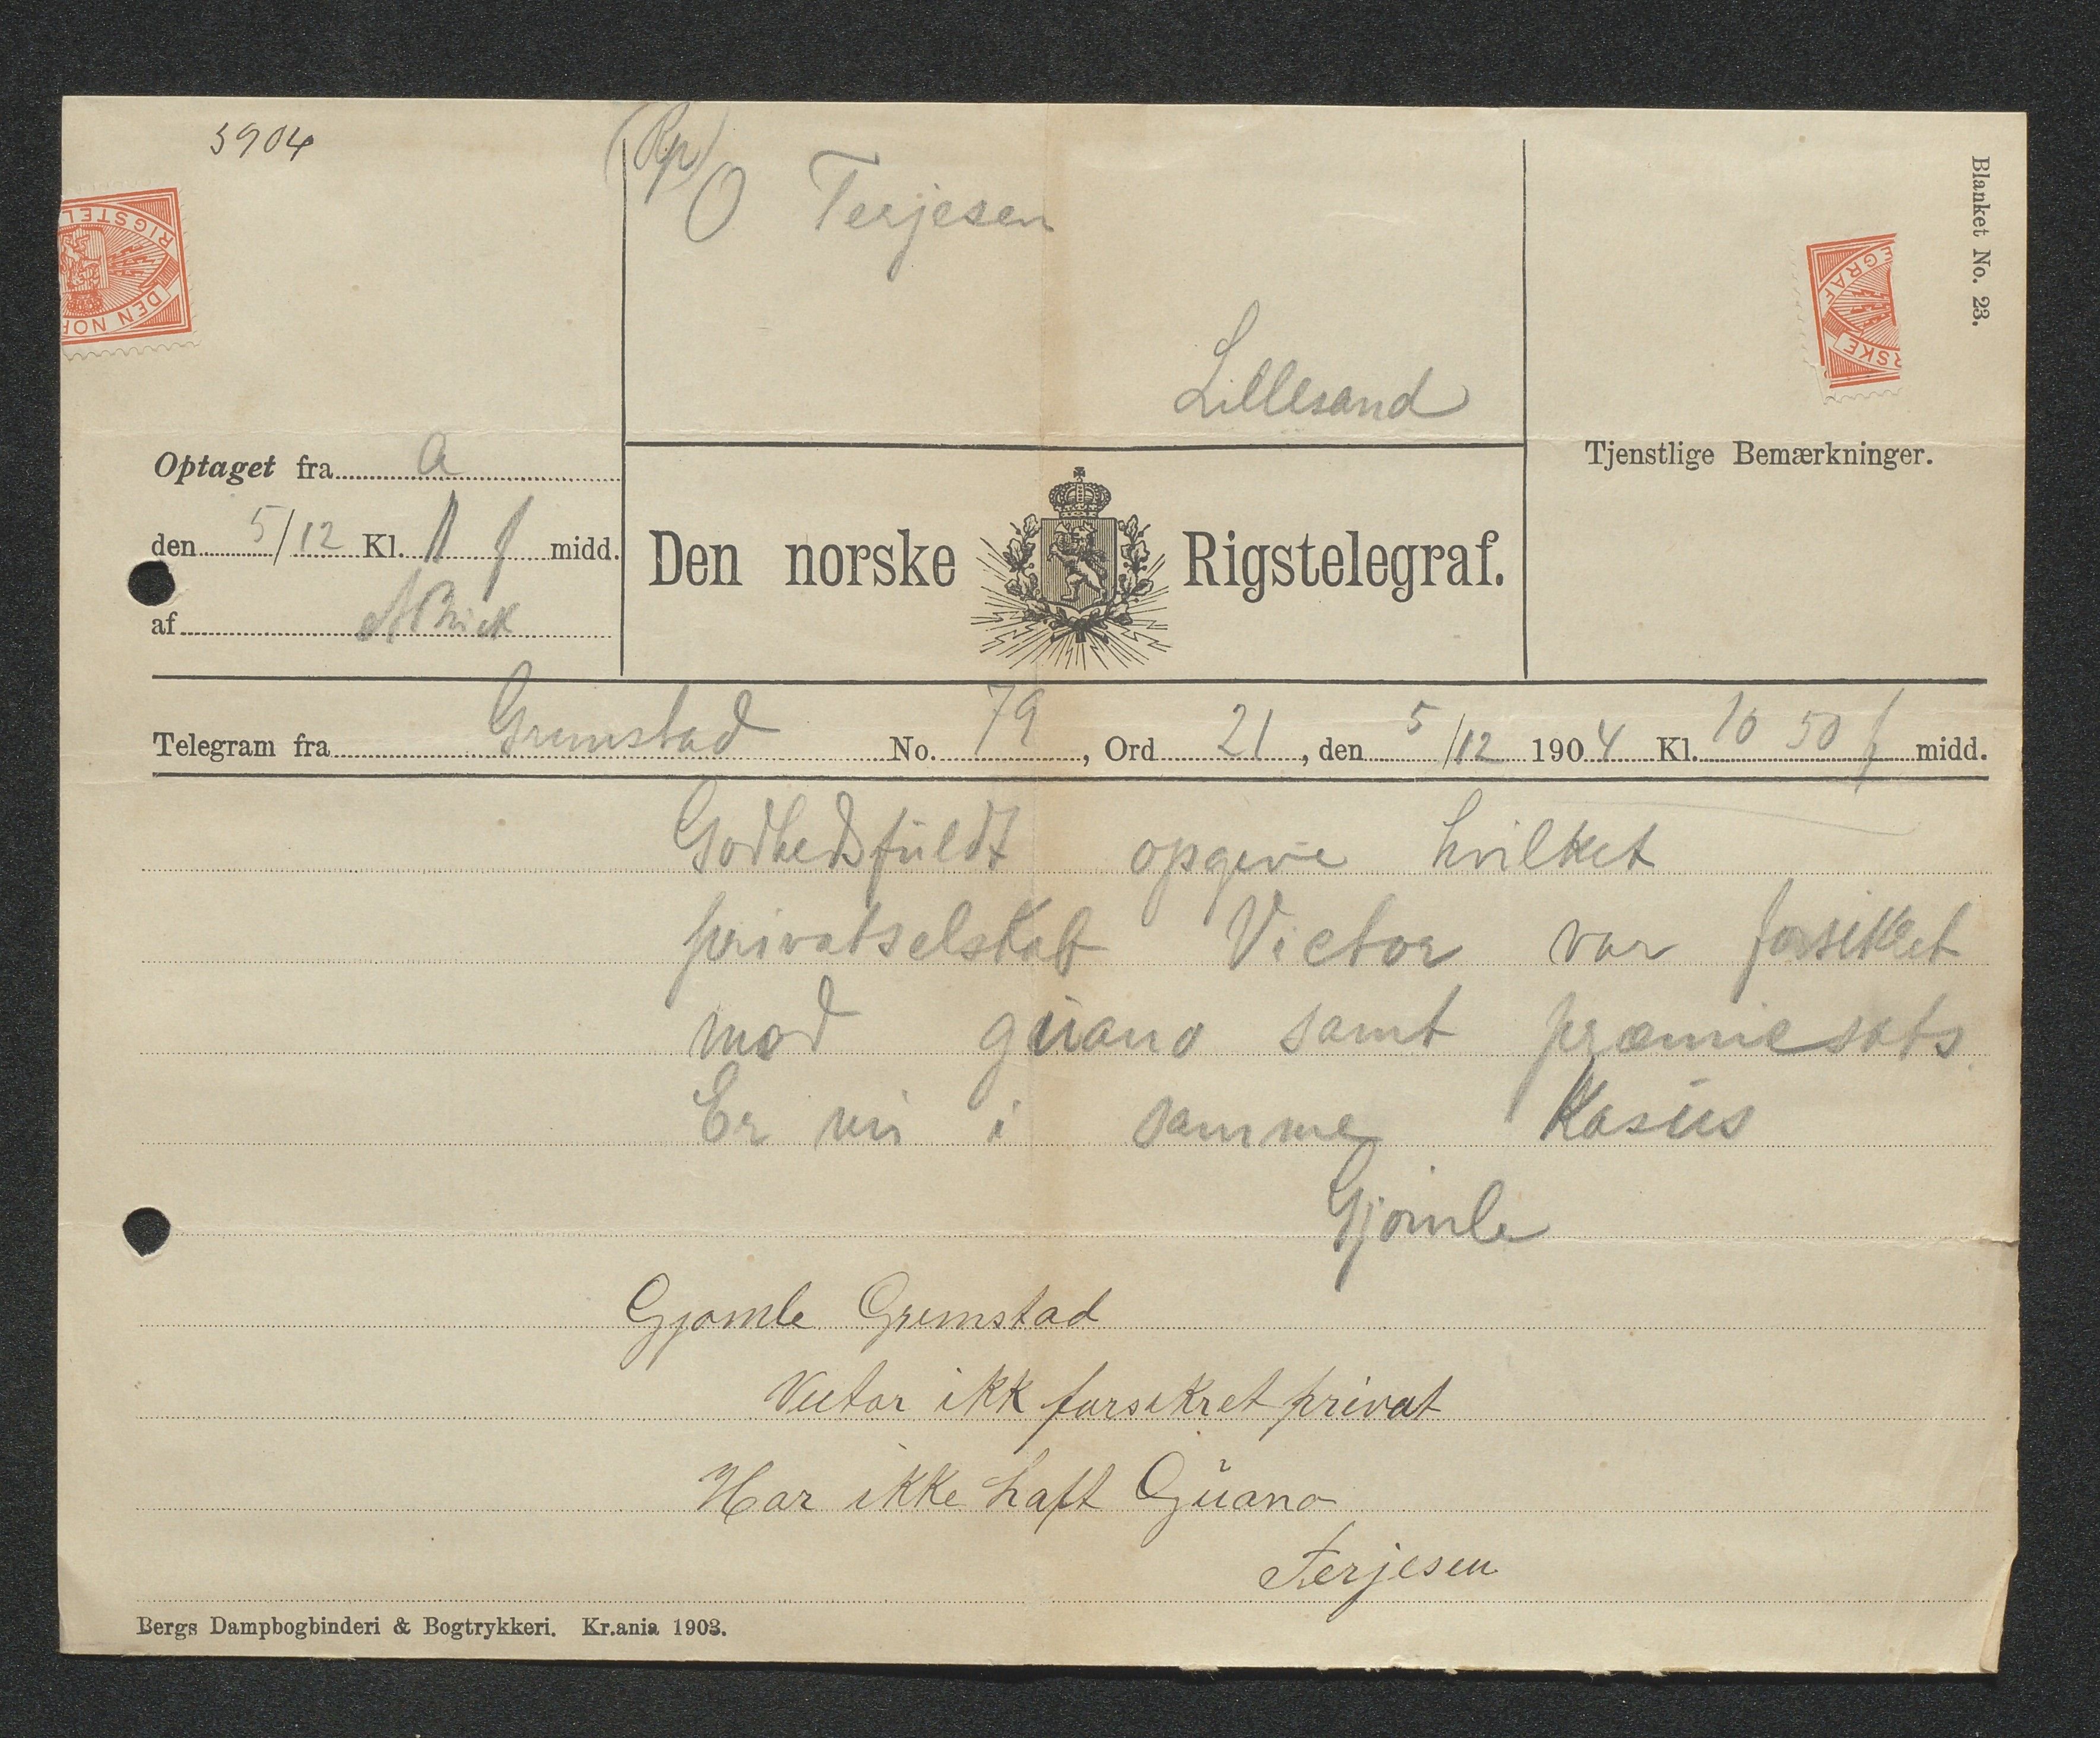 5904
(Rp)
O Terjesen
Lillesand
Blanket No. 23.
RIGSTEL
DEN NOR
EGRAF
RSKE
Optaget fra a
den 5/12 Kl. 11 f midd.
af
Den norske Rigstelegraf.
Tjenstlige Bemærkninger.
Telegram fra Grimstad No. 79, Ord 21, den 5/12 1904 Kl. 10 50 f midd.
Godhedsfuldt opgive hvilket
privatselskab Victor var forsikret
mod guano samt præmiesats
Er vi i samme Kasus
Gjomle
Gjomle Grimstad
Victor ikk forsikret privat
Har ikke haft Guano
Terjesen
Bergs Dampbogbinderi & Bogtrykkeri. Kr.ania 1903.